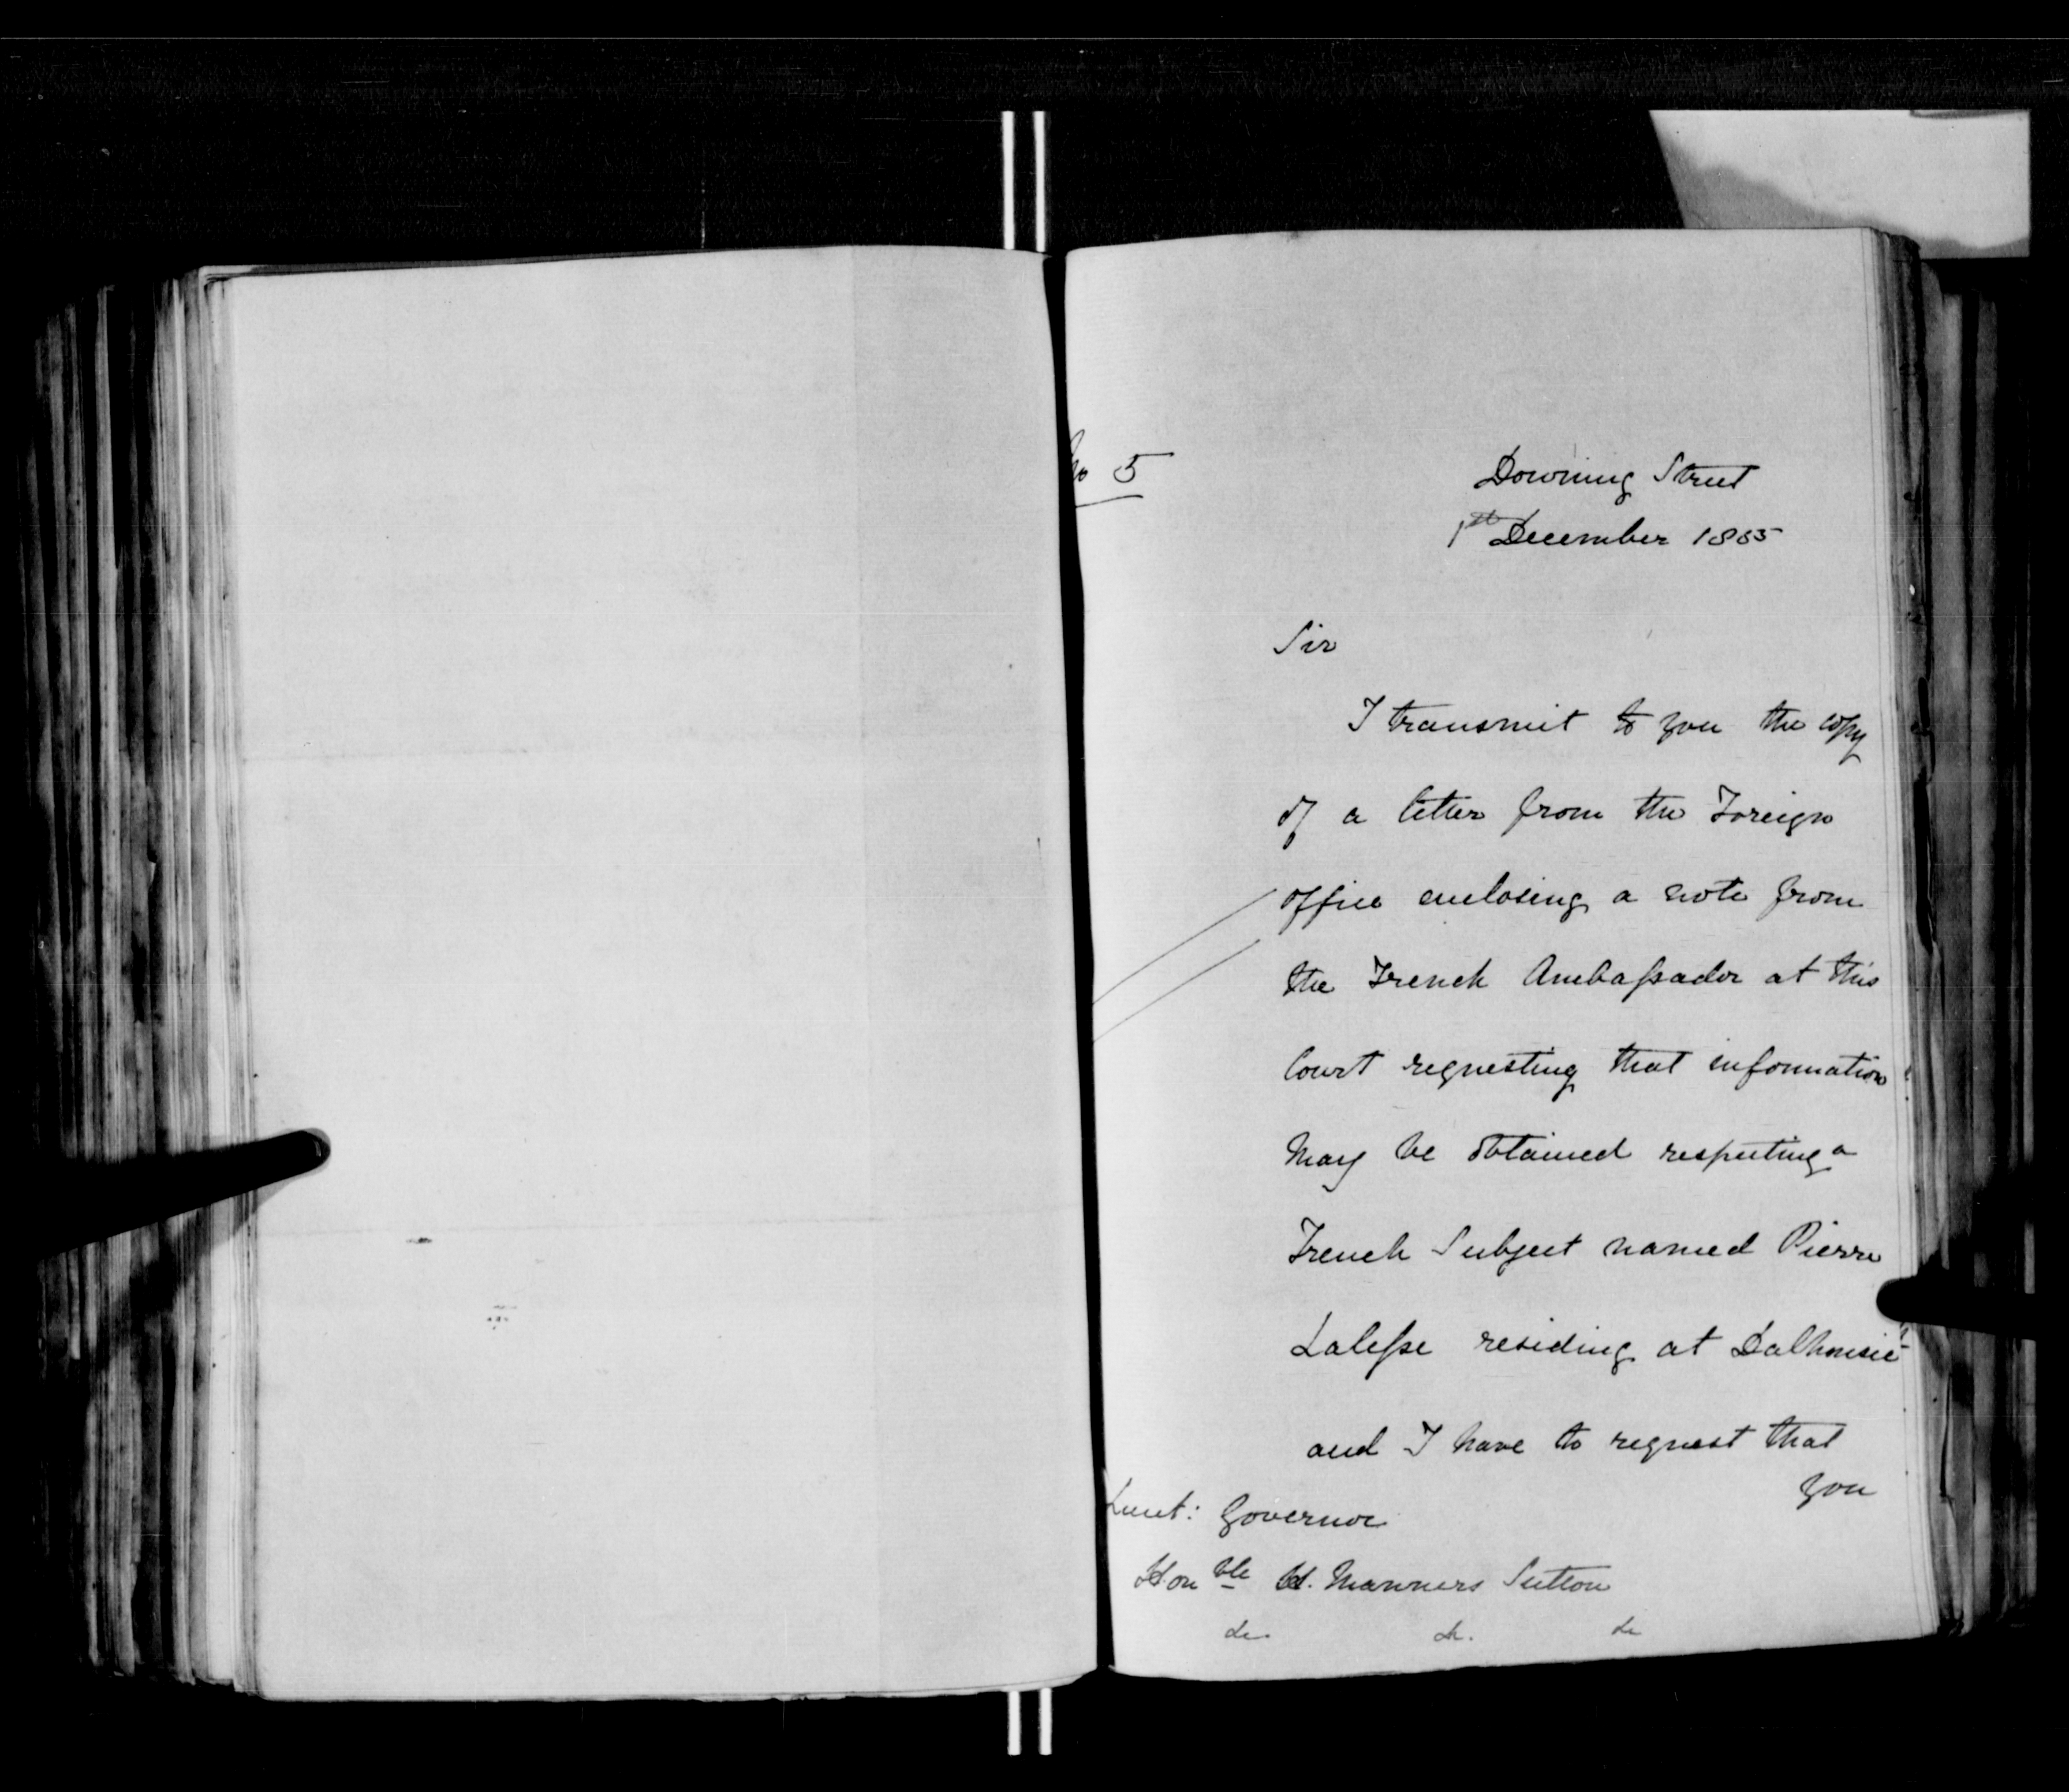 No 5
Downing Street
1st December 1855
Sir
I transmit to you the copy
of a letter from the Foreign
office enclosing a note from
the French Ambassador at this
Court requesting that information
may be obtained respecting a
French Subject named Pierre
Lalesse residing at Dalhousie
and I have to request that
you
Lieut: Governor
Honble H. Manners Sutton
&c. &c. &c